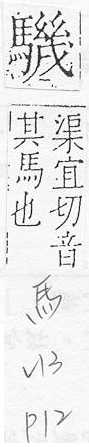 渠宜切音
其馬也
馬
v13
p12